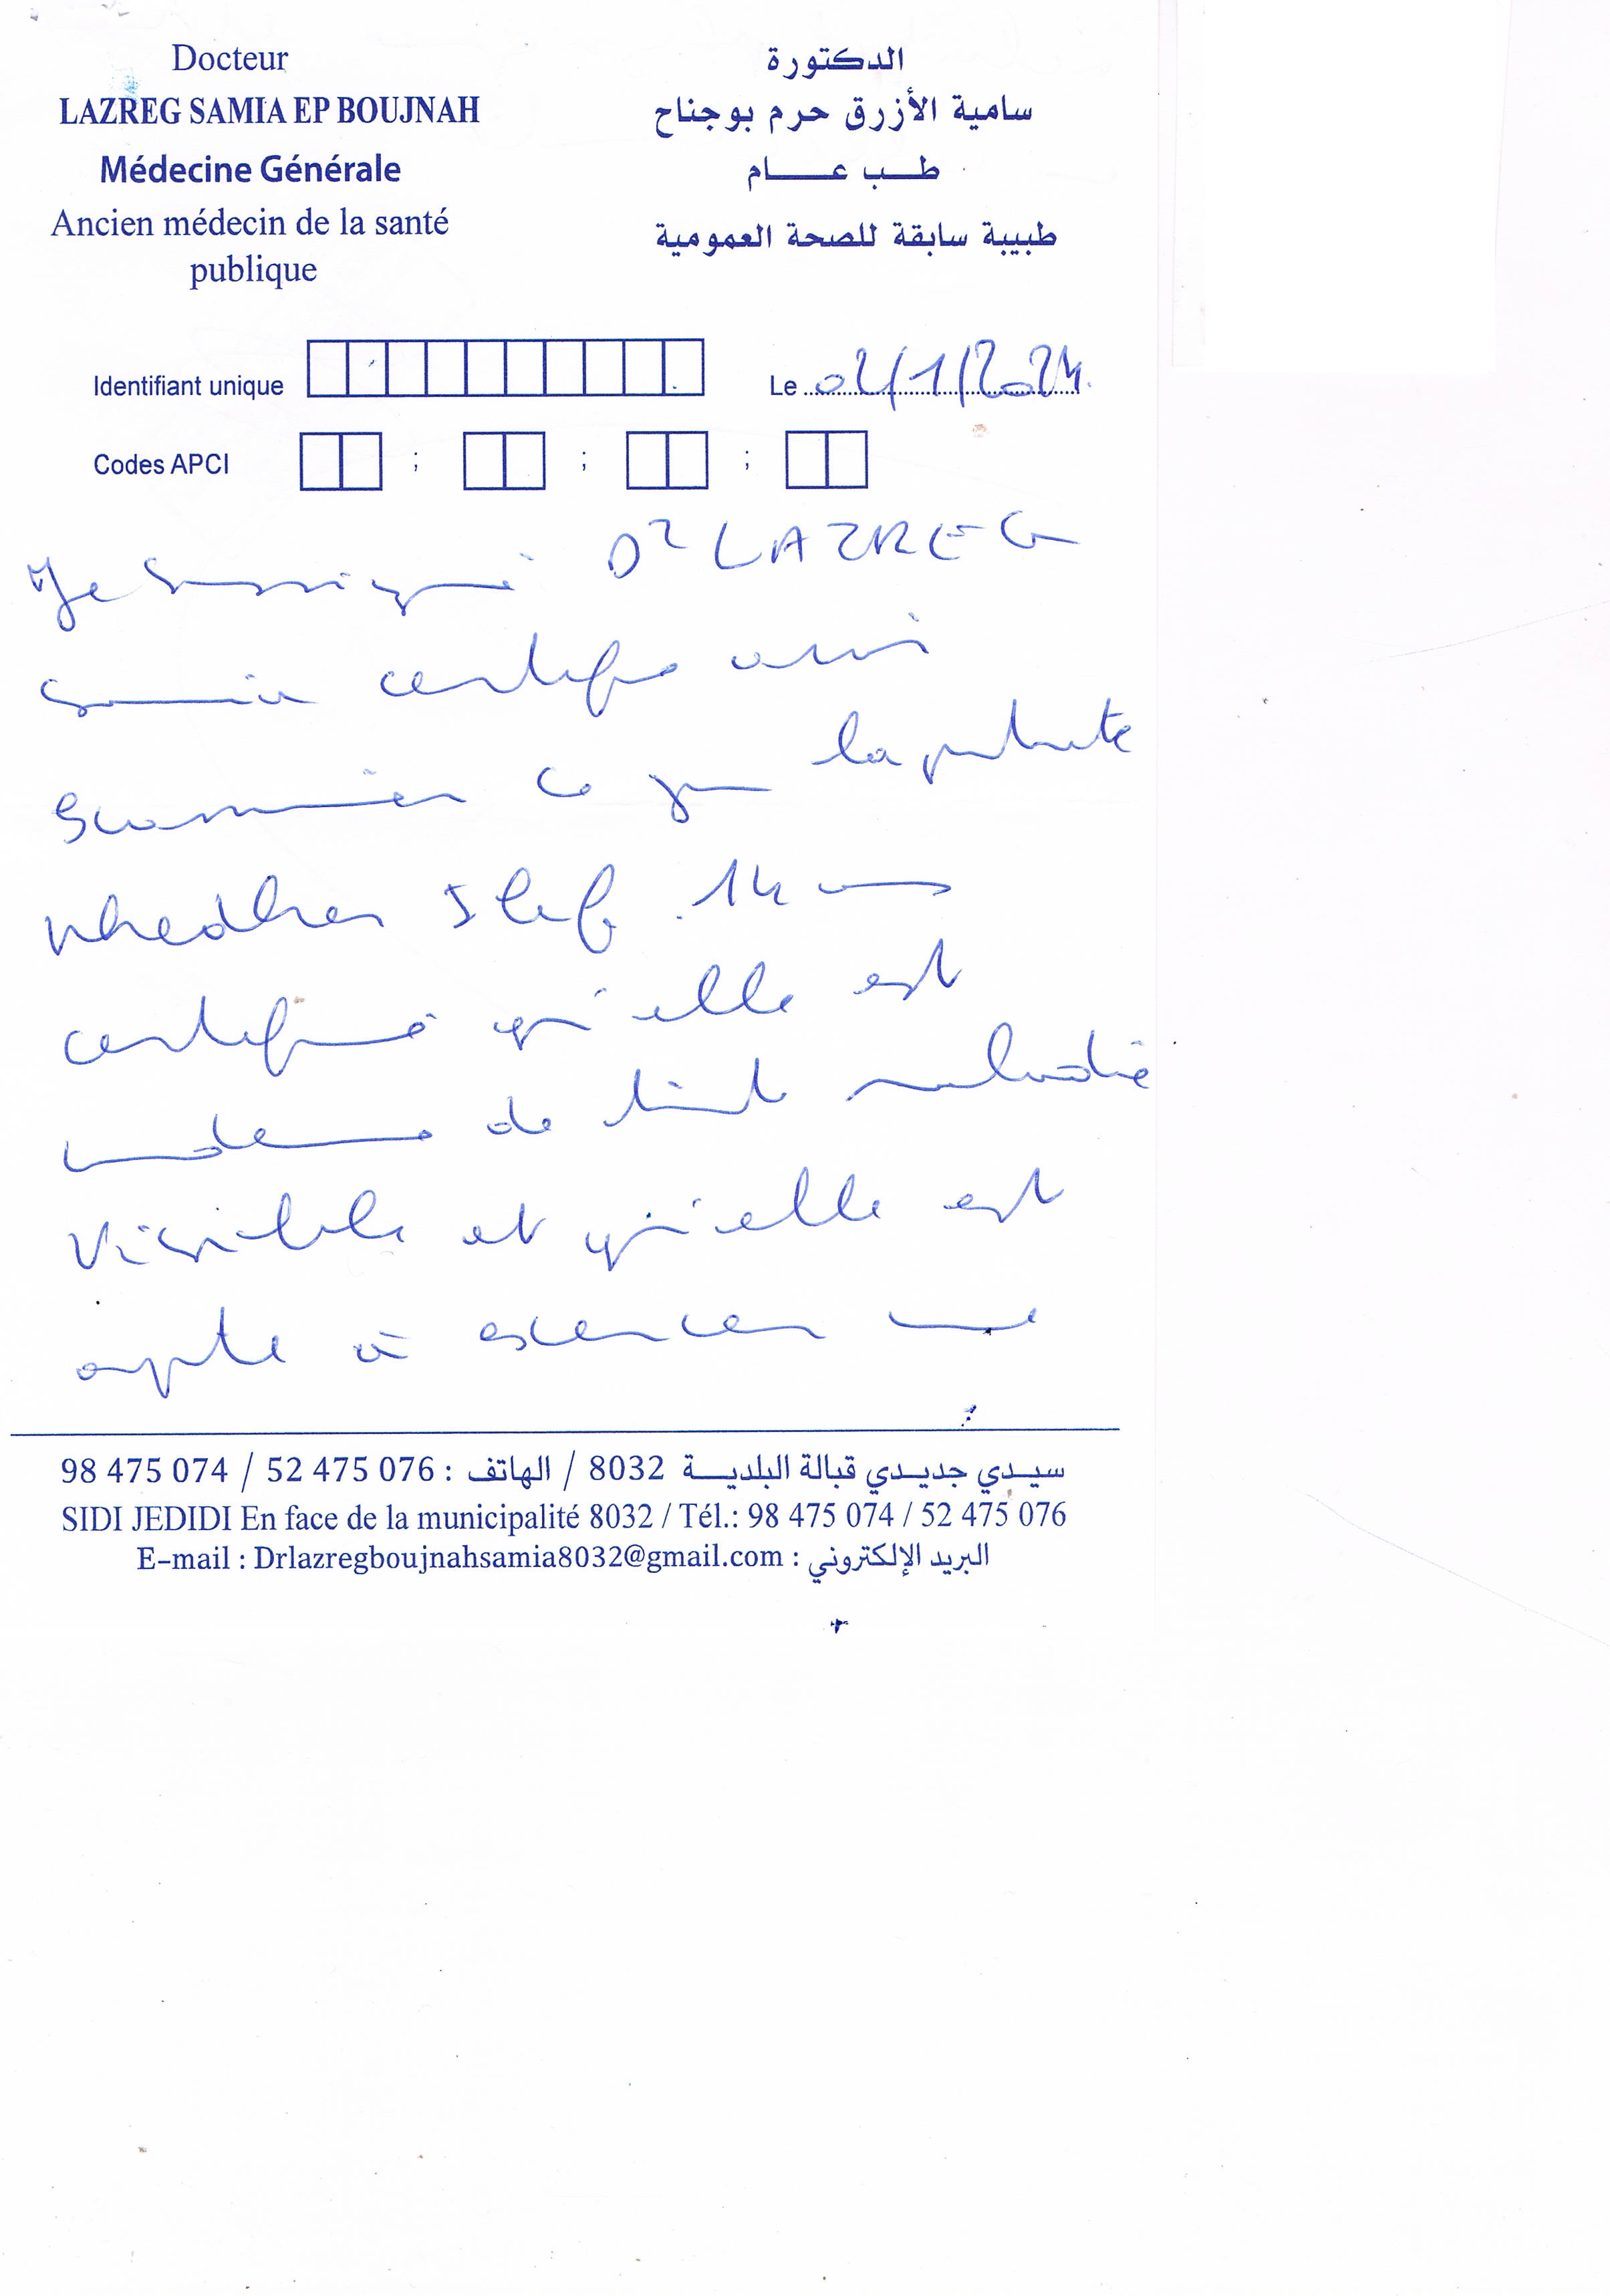 Docteur
الدكتورة
LAZREG SAMIA EP BOUJNAH
سامية الأزرق حرم بوجناح
Médecine Générale
طب عام
Ancien médecin de la santé
publique
طبيبة سابقة للصحة العمومية
Identifiant unique
Le 02/1/2024
Codes APCI ; ; ;
Je soussigné Dr LAZREG
Samia certifie avoir
examiner ce jour la patiente
14 ans
certifie qu'elle est
indemne de toute maladie
visible et qu'elle est
apte à exercer une
سيدي جديدي قبالة البلدية 8032 / الهاتف : 52 475 076 / 98 475 074
SIDI JEDIDI En face de la municipalité 8032 / Tél.: 98 475 074 / 52 475 076
E-mail : Drlazregboujnahsamia8032@gmail.com : البريد الإلكتروني